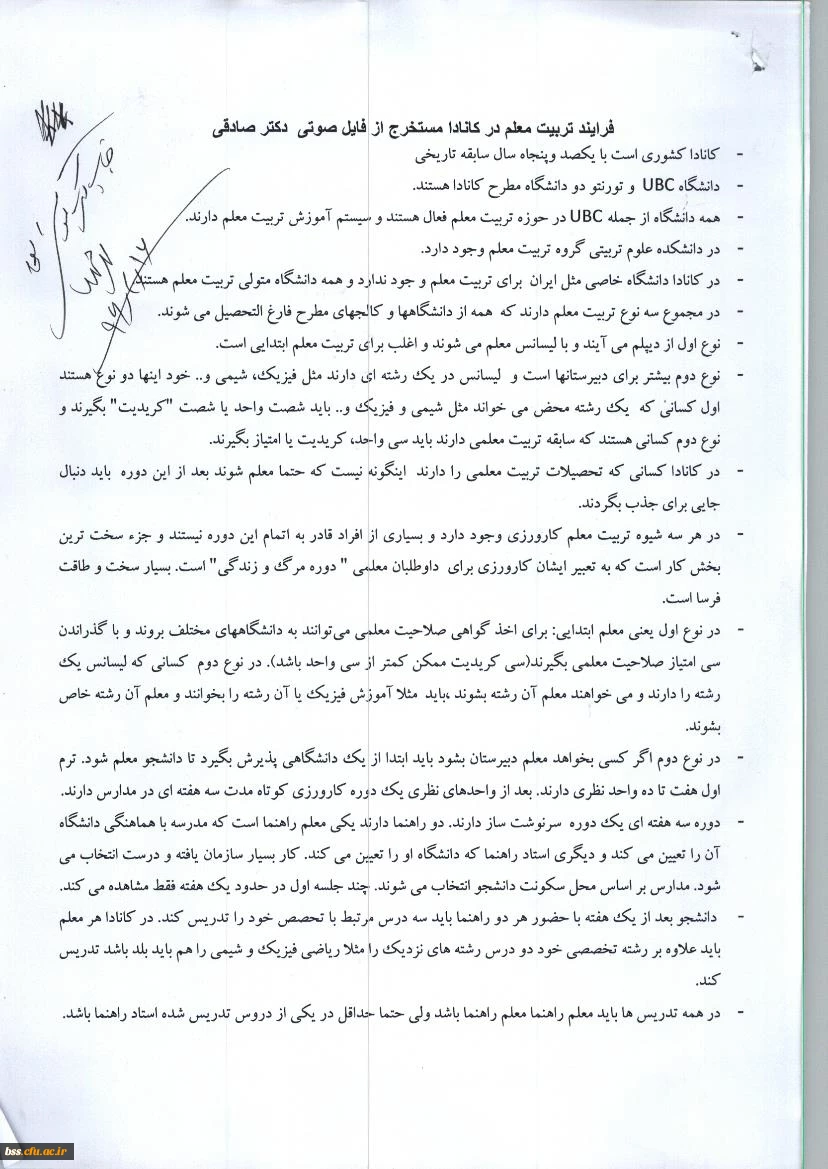 فرایند تربیت معلم در کانادا مستخرج از فایل صوتی دکتر صادقی
- کانادا کشوری است با یکصد وپنجاه سال سابقه تاریخی
- دانشگاه UBC و تورنتو دو دانشگاه مطرح کانادا هستند.
- همه دانشگاه از جمله UBC در حوزه تربیت معلم فعال هستند و سیستم آموزش تربیت معلم دارند.
- در دانشکده علوم تربیتی گروه تربیت معلم وجود دارد.
- در کانادا دانشگاه خاصی مثل ایران برای تربیت معلم و جود ندارد و همه دانشگاه متولی تربیت معلم هستند
- در مجموع سه نوع تربیت معلم دارند که همه از دانشگاهها و کالجهای مطرح فارغ التحصیل می شوند.
- نوع اول از دیپلم می آیند و با لیسانس معلم می شوند و اغلب برای تربیت معلم ابتدایی است.
- نوع دوم بیشتر برای دبیرستانها است و لیسانس در یک رشته ای دارند مثل فیزیک، شیمی و.. خود اینها دو نوع هستند
اول کسانی که یک رشته محض می خواند مثل شیمی و فیزیک و.. باید شصت واحد یا شصت "کریدیت" بگیرند و
نوع دوم کسانی هستند که سابقه تربیت معلمی دارند باید سی واحد، کریدیت یا امتیاز بگیرند.
- در کانادا کسانی که تحصیلات تربیت معلمی را دارند اینگونه نیست که حتما معلم شوند بعد از این دوره باید دنبال
جایی برای جذب بگردند.
- در هر سه شیوه تربیت معلم کارورزی وجود دارد و بسیاری از افراد قادر به اتمام این دوره نیستند و جزء سخت ترین
بخش کار است که به تعبیر ایشان کارورزی برای داوطلبان معلمی " دوره مرگ و زندگی" است. بسیار سخت و طاقت
فرسا است.
- در نوع اول یعنی معلم ابتدایی: برای اخذ گواهی صلاحیت معلمی می‌توانند به دانشگاههای مختلف بروند و با گذراندن
سی امتیاز صلاحیت معلمی بگیرند(سی کریدیت ممکن کمتر از سی واحد باشد). در نوع دوم کسانی که لیسانس یک
رشته را دارند و می خواهند معلم آن رشته بشوند ،باید مثلا آموزش فیزیک یا آن رشته را بخوانند و معلم آن رشته خاص
بشوند.
- در نوع دوم اگر کسی بخواهد معلم دبیرستان بشود باید ابتدا از یک دانشگاهی پذیرش بگیرد تا دانشجو معلم شود. ترم
اول هفت تا ده واحد نظری دارند. بعد از واحدهای نظری یک دوره کارورزی کوتاه مدت سه هفته ای در مدارس دارند.
- دوره سه هفته ای یک دوره سرنوشت ساز دارند. دو راهنما دارند یکی معلم راهنما است که مدرسه با هماهنگی دانشگاه
آن را تعیین می کند و دیگری استاد راهنما که دانشگاه او را تعیین می کند. کار بسیار سازمان یافته و درست انتخاب می
شود. مدارس بر اساس محل سکونت دانشجو انتخاب می شوند. چند جلسه اول در حدود یک هفته فقط مشاهده می کند.
- دانشجو بعد از یک هفته با حضور هر دو راهنما باید سه درس مرتبط با تحصص خود را تدریس کند. در کانادا هر معلم
باید علاوه بر رشته تخصصی خود دو درس رشته های نزدیک را مثلا ریاضی فیزیک و شیمی را هم باید بلد باشد تدریس
کند.
- در همه تدریس ها باید معلم راهنما معلم راهنما باشد ولی حتما حداقل در یکی از دروس تدریس شده استاد راهنما باشد.
bss.cfu.ac.ir